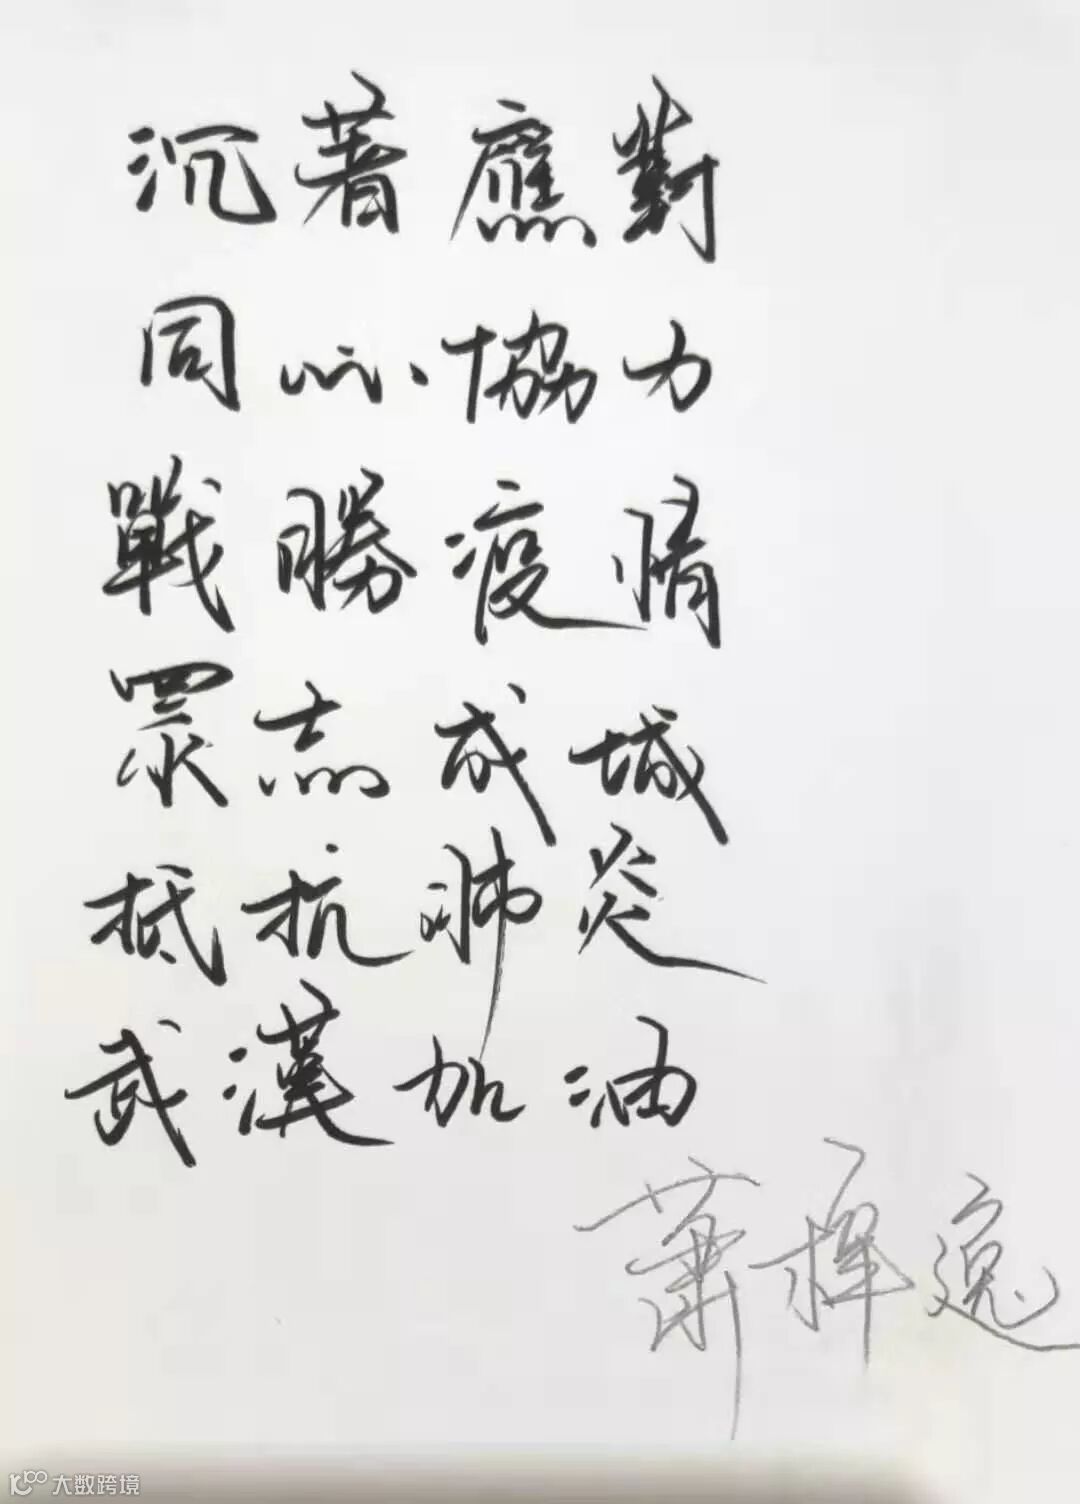 沉著應對
同心協力
戰勝疫情
眾志成城
抵抗肺炎
武漢加油
蕭揮逸
大数跨境